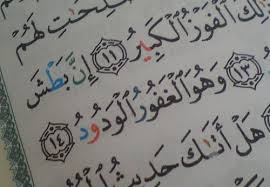 لَهُمْ
ذَٰلِكَ ٱلْفَوْزُ ٱلْكَبِيرُ ١١ إِنَّ بَطْشَ
١٣ وَهُوَ ٱلْغَفُورُ ٱلْوَدُودُ ١٤
هَلْ أَتَىٰكَ حَدِيثُ